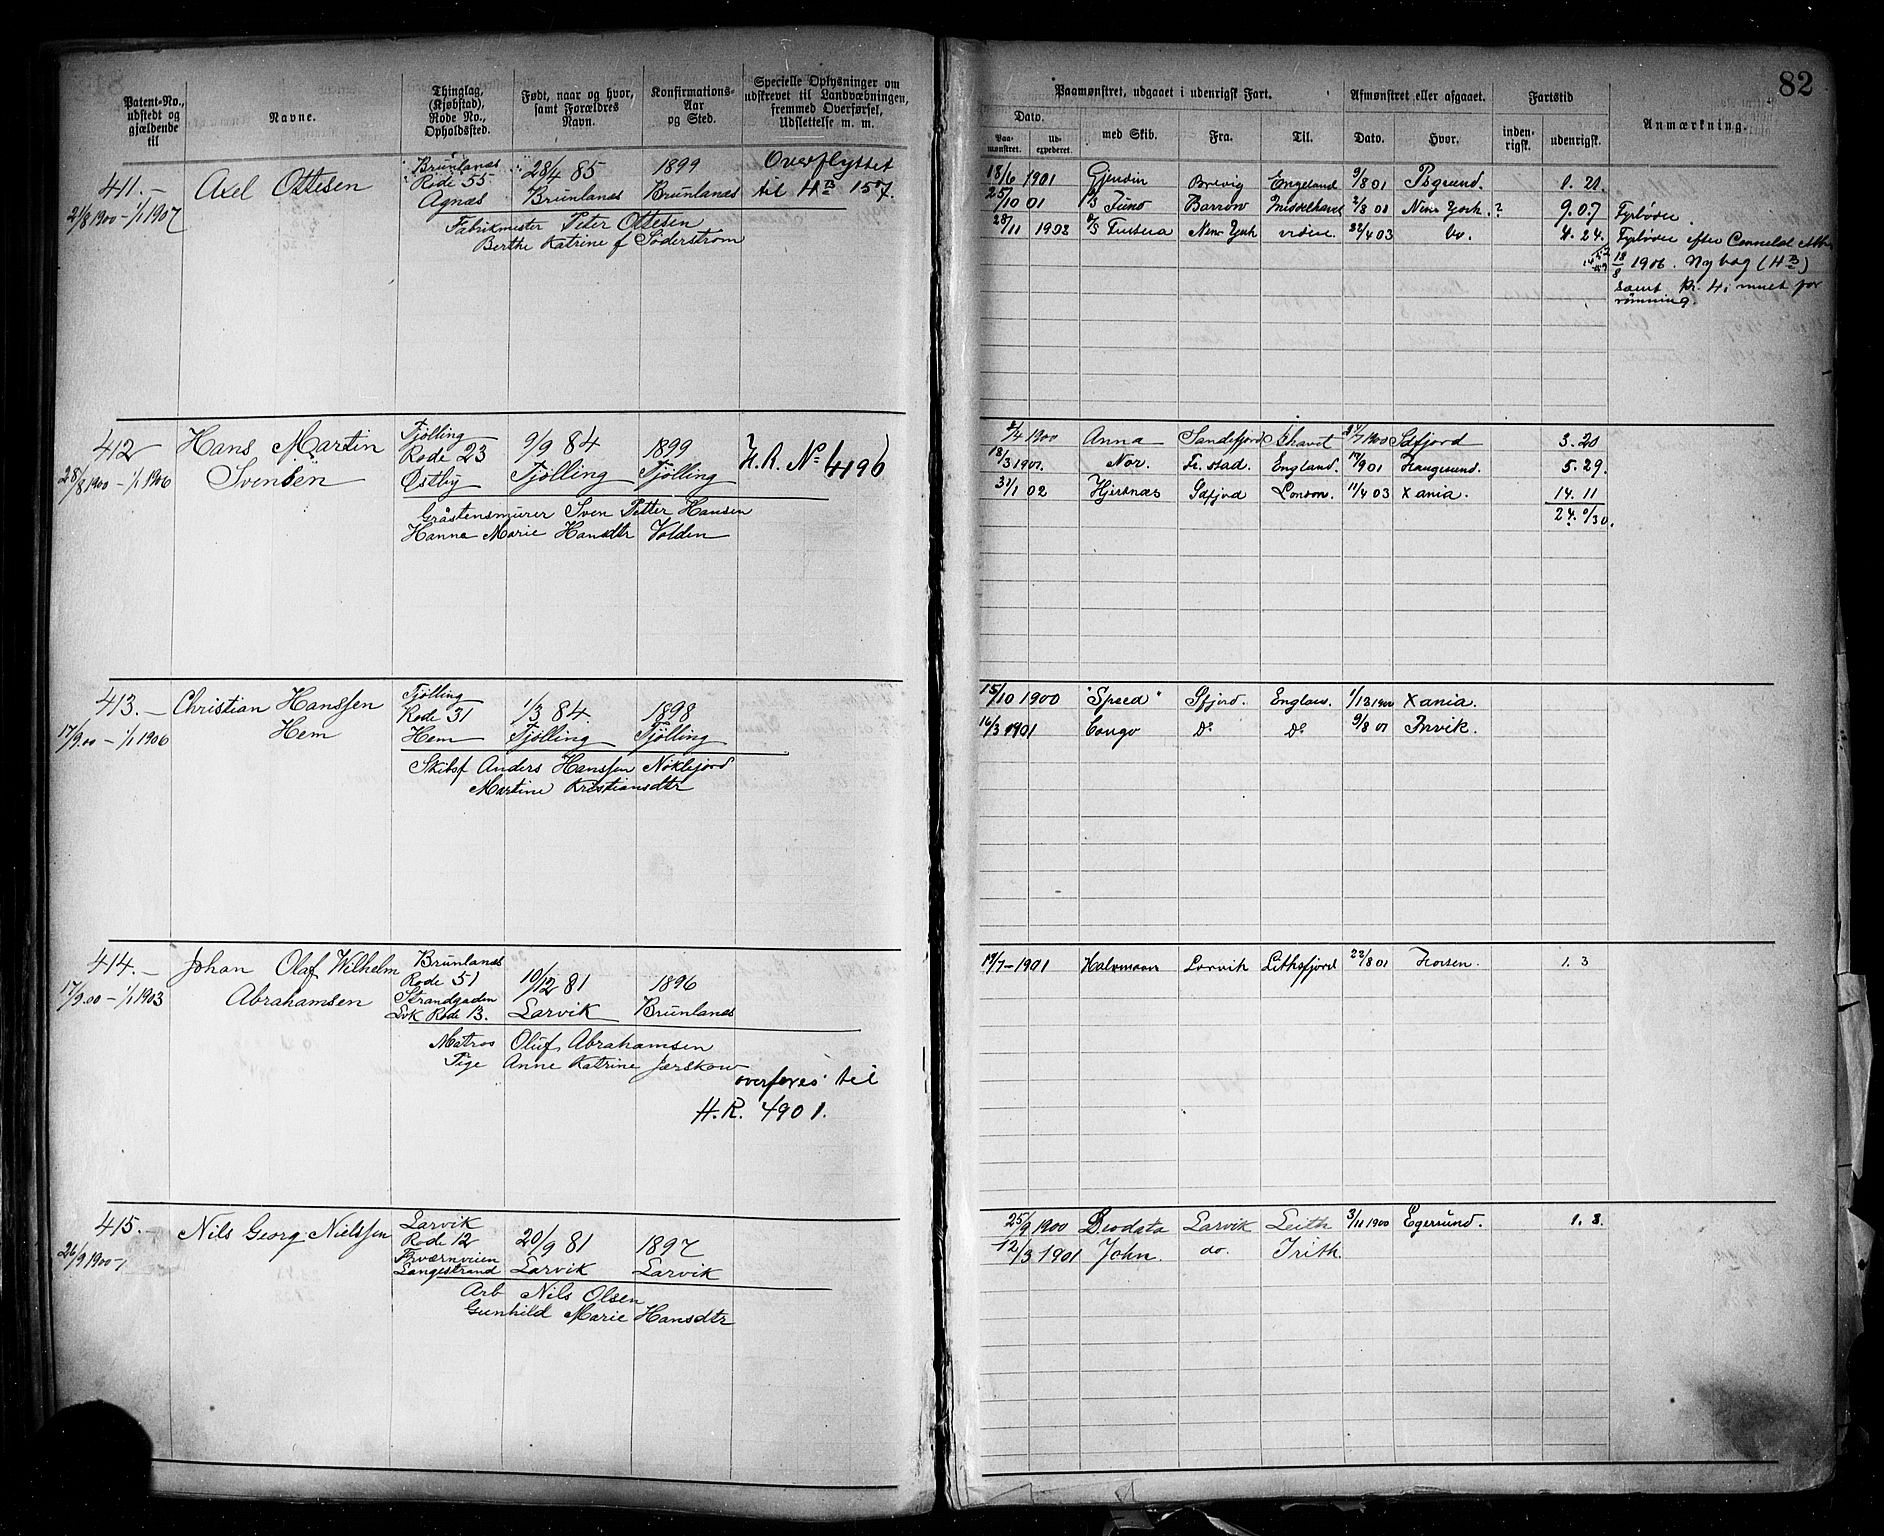 82
Patent-No., udstedt og gjældende til
Navne.
Thinglag, (Kjøbstad), Rode No., Opholdssted.
Født, naar og hvor, samt Forældres Navn.
Konfirmations-Aar og Sted.
Specielle Oplysninger om udskrevet til Landvæbningen, fremmed Overførsel, Udslettelse m. m.
Paamønstret, udgaaet i udenrigsk Fart.
Afmønstret eller afgaaet.
Fartstid
Anmærkning.
Dato.
Paa-mønstret.
Ud-expederet.
med Skib.
Fra.
Til.
Dato.
Hvor.
inden-rigsk.
udenrigsk.
411.— Axel Ottesen Brunlanes 28/4 85 1899 Overflyttet
21/8 1900 – 1/1 1907 Rode 55 Brunlanes Brunlanes til HB 157.
Agnæs
Fabrikmester Peter Ottesen
Berthe Katrine f Söderstrom
18/6 1901 Gjendin Brevig Engeland 9/8 01 Psgrund. 1. 21.
25/10 01 Barrow Middelhavet 2/8 01 New York. ? 9. 07. Fyrbøder.
28/11 1902 New York 22/4 03 4. 24. Fyrbøder efter
18/8 1906. Ny bog (HB)
samt kr. 4 i mulct for
rømning.
412 Hans Martin Tjølling 9/9 84 1899 H.R. No 4196
28/8 1900 – 1/1 1906 Svensen Rode 23 Tjølling Tjølling
Østby
Gråstensmurer Sven Petter Hansen
Hanne Marie Hansdtr Volden
1900 Anna Sandefjord Ishavet 1900 Sdfjord 3. 20
18/3 1901 Nor. Fr.stad. England. 17/9 01 Haugesund. 5. 29.
31/1 02 Hjertnæs Sdfjord London. 11/4 03 Xania. 14. 11
24. 0/30.
413.— Christian Hanssen Tjølling 1/3 84. 1898
17/9.00 – 1/1 1906 Hem Rode 31 Tjølling Tjølling
Hem
Skibsf Anders Hanssen Noklejord
Martine Kristiansdtr
15/10 1900 "Speed" Sfjord. Englan. 1/12 1900 Xania.
16/3 1901 Congo Do Do 9/8 01
414.— Johan Olaf Wilhelm Brunlanes 10/12 81 1896
17/9.00 – 1/1 1903 Abrahamsen Rode 51 Larvik Brunlanes
Strandgaden
Lvk Rode 13.
Matros Oluf Abrahamsen
Pige Anne Katrine Jærskow
overføres til
H.R. 4901.
19/7 – 1901 Halvmaan Larvik 22/8 01 1. 3
415.— Nils Georg Nielssen Larvik 20/9 81 1897
26/9 1900 – Rode 12 Larvik Larvik
Tværnveien
Langestrand
Arb Nils Olsen
Gunhild Marie Hansdtr
25/9 1900 Deodata Larvik Leith 3/11 1900 Egersund. 1. 8.
12/3 1901 John. do.